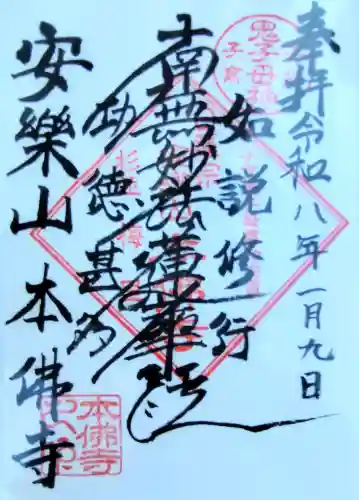 奉拝
令和八年一月九日
如説修行
南無妙法蓮華経
功徳甚多
安樂山
本佛寺
鬼子母神
本佛寺